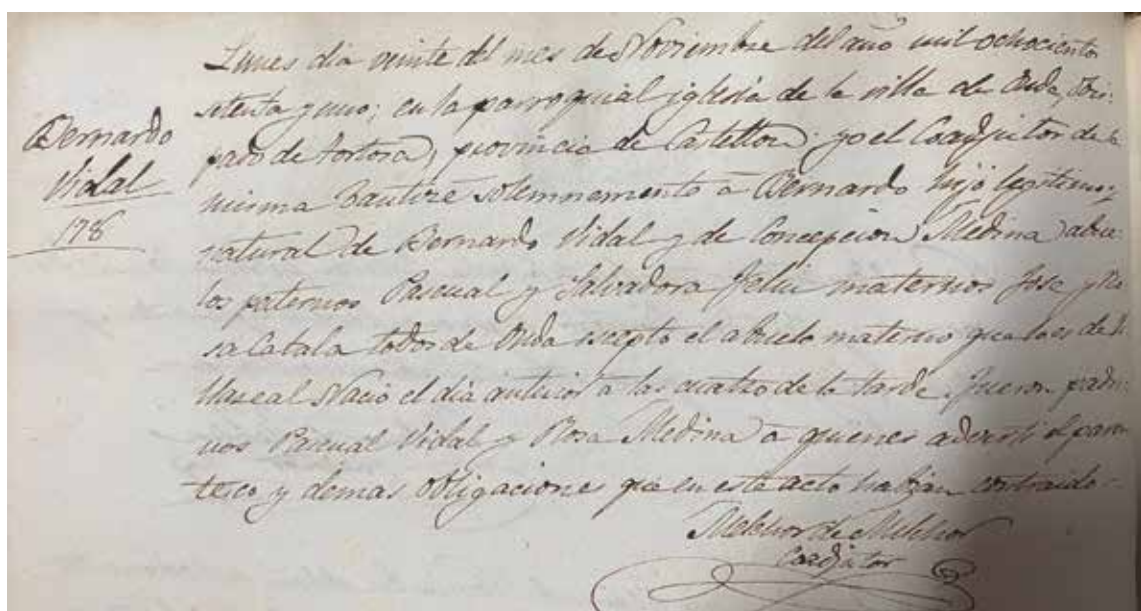 Bernardo
Vidal
178
Lunes dia veinte del mes de Noviembre del año mil ochocientos
setenta y uno; en la parroquial iglesia de la villa de Onda, Obis-
pado de Tortosa, provincia de Castellon: yo el Coadjutor de la
misma Bautizé solemnemente a Bernardo hijo legitimo y
natural de Bernardo Vidal y de Concepcion Medina abue-
los paternos Pascual y Salvadora Feliu maternos Jose y Ro
sa Catala todos de Onda escepto el abuelo materno que lo es de
Nacio el dia anterior a las cuatro de la tarde. Fueron padri-
nos Pascual Vidal y Rosa Medina a quienes adverti el paren
tesco y demas obligaciones que en este acto habian contraido-
Melchor de Melchor
Coadjutor